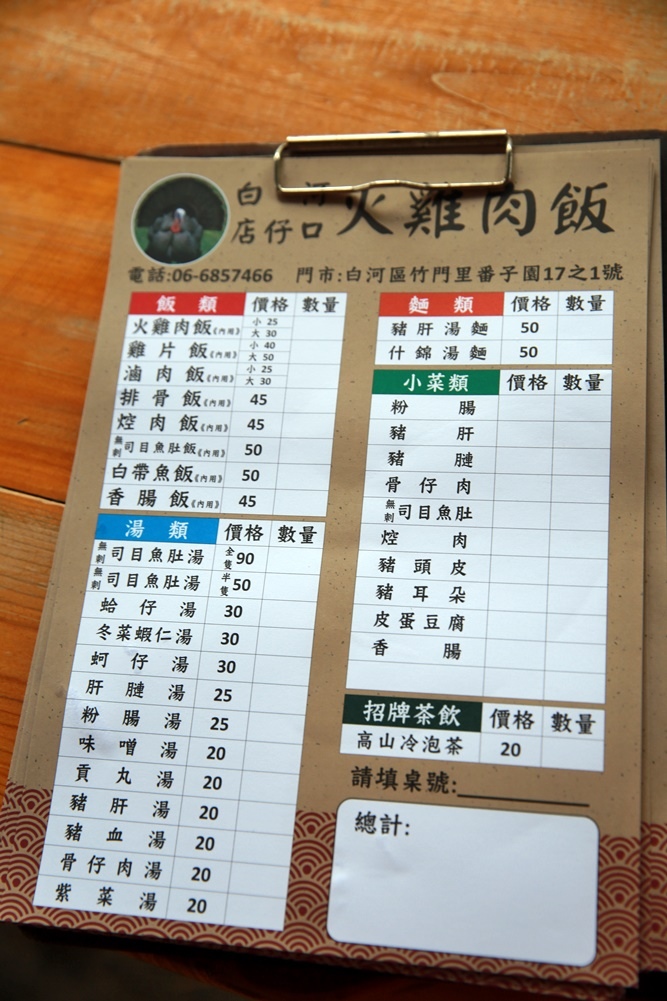 白河
店仔口
火雞肉飯
電話:06-6857466 門市:白河區竹門里番子園17之1號
飯類 價格 數量
火雞肉飯《內用》 小 25 大 30
雞片飯《內用》 小 40 大 50
滷肉飯《內用》 小 25 大 30
排骨飯《內用》 45
焢肉飯《內用》 45
無刺司目魚肚飯《內用》 50
白帶魚飯《內用》 50
香腸飯《內用》 45
湯類 價格 數量
無刺司目魚肚湯 全隻90
無刺司目魚肚湯 半隻50
蛤仔湯 30
冬菜蝦仁湯 30
蚵仔湯 30
肝腱湯 25
粉腸湯 25
味噌湯 20
貢丸湯 20
豬肝湯 20
豬血湯 20
骨仔肉湯 20
紫菜湯 20
麵類 價格 數量
豬肝湯麵 50
什錦湯麵 50
小菜類 價格 數量
粉腸
豬肝
豬腱
骨仔肉
無刺司目魚肚
焢肉
豬頭皮
豬耳朵
皮蛋豆腐
香腸
招牌茶飲 價格 數量
高山冷泡茶 20
請填桌號:
總計: